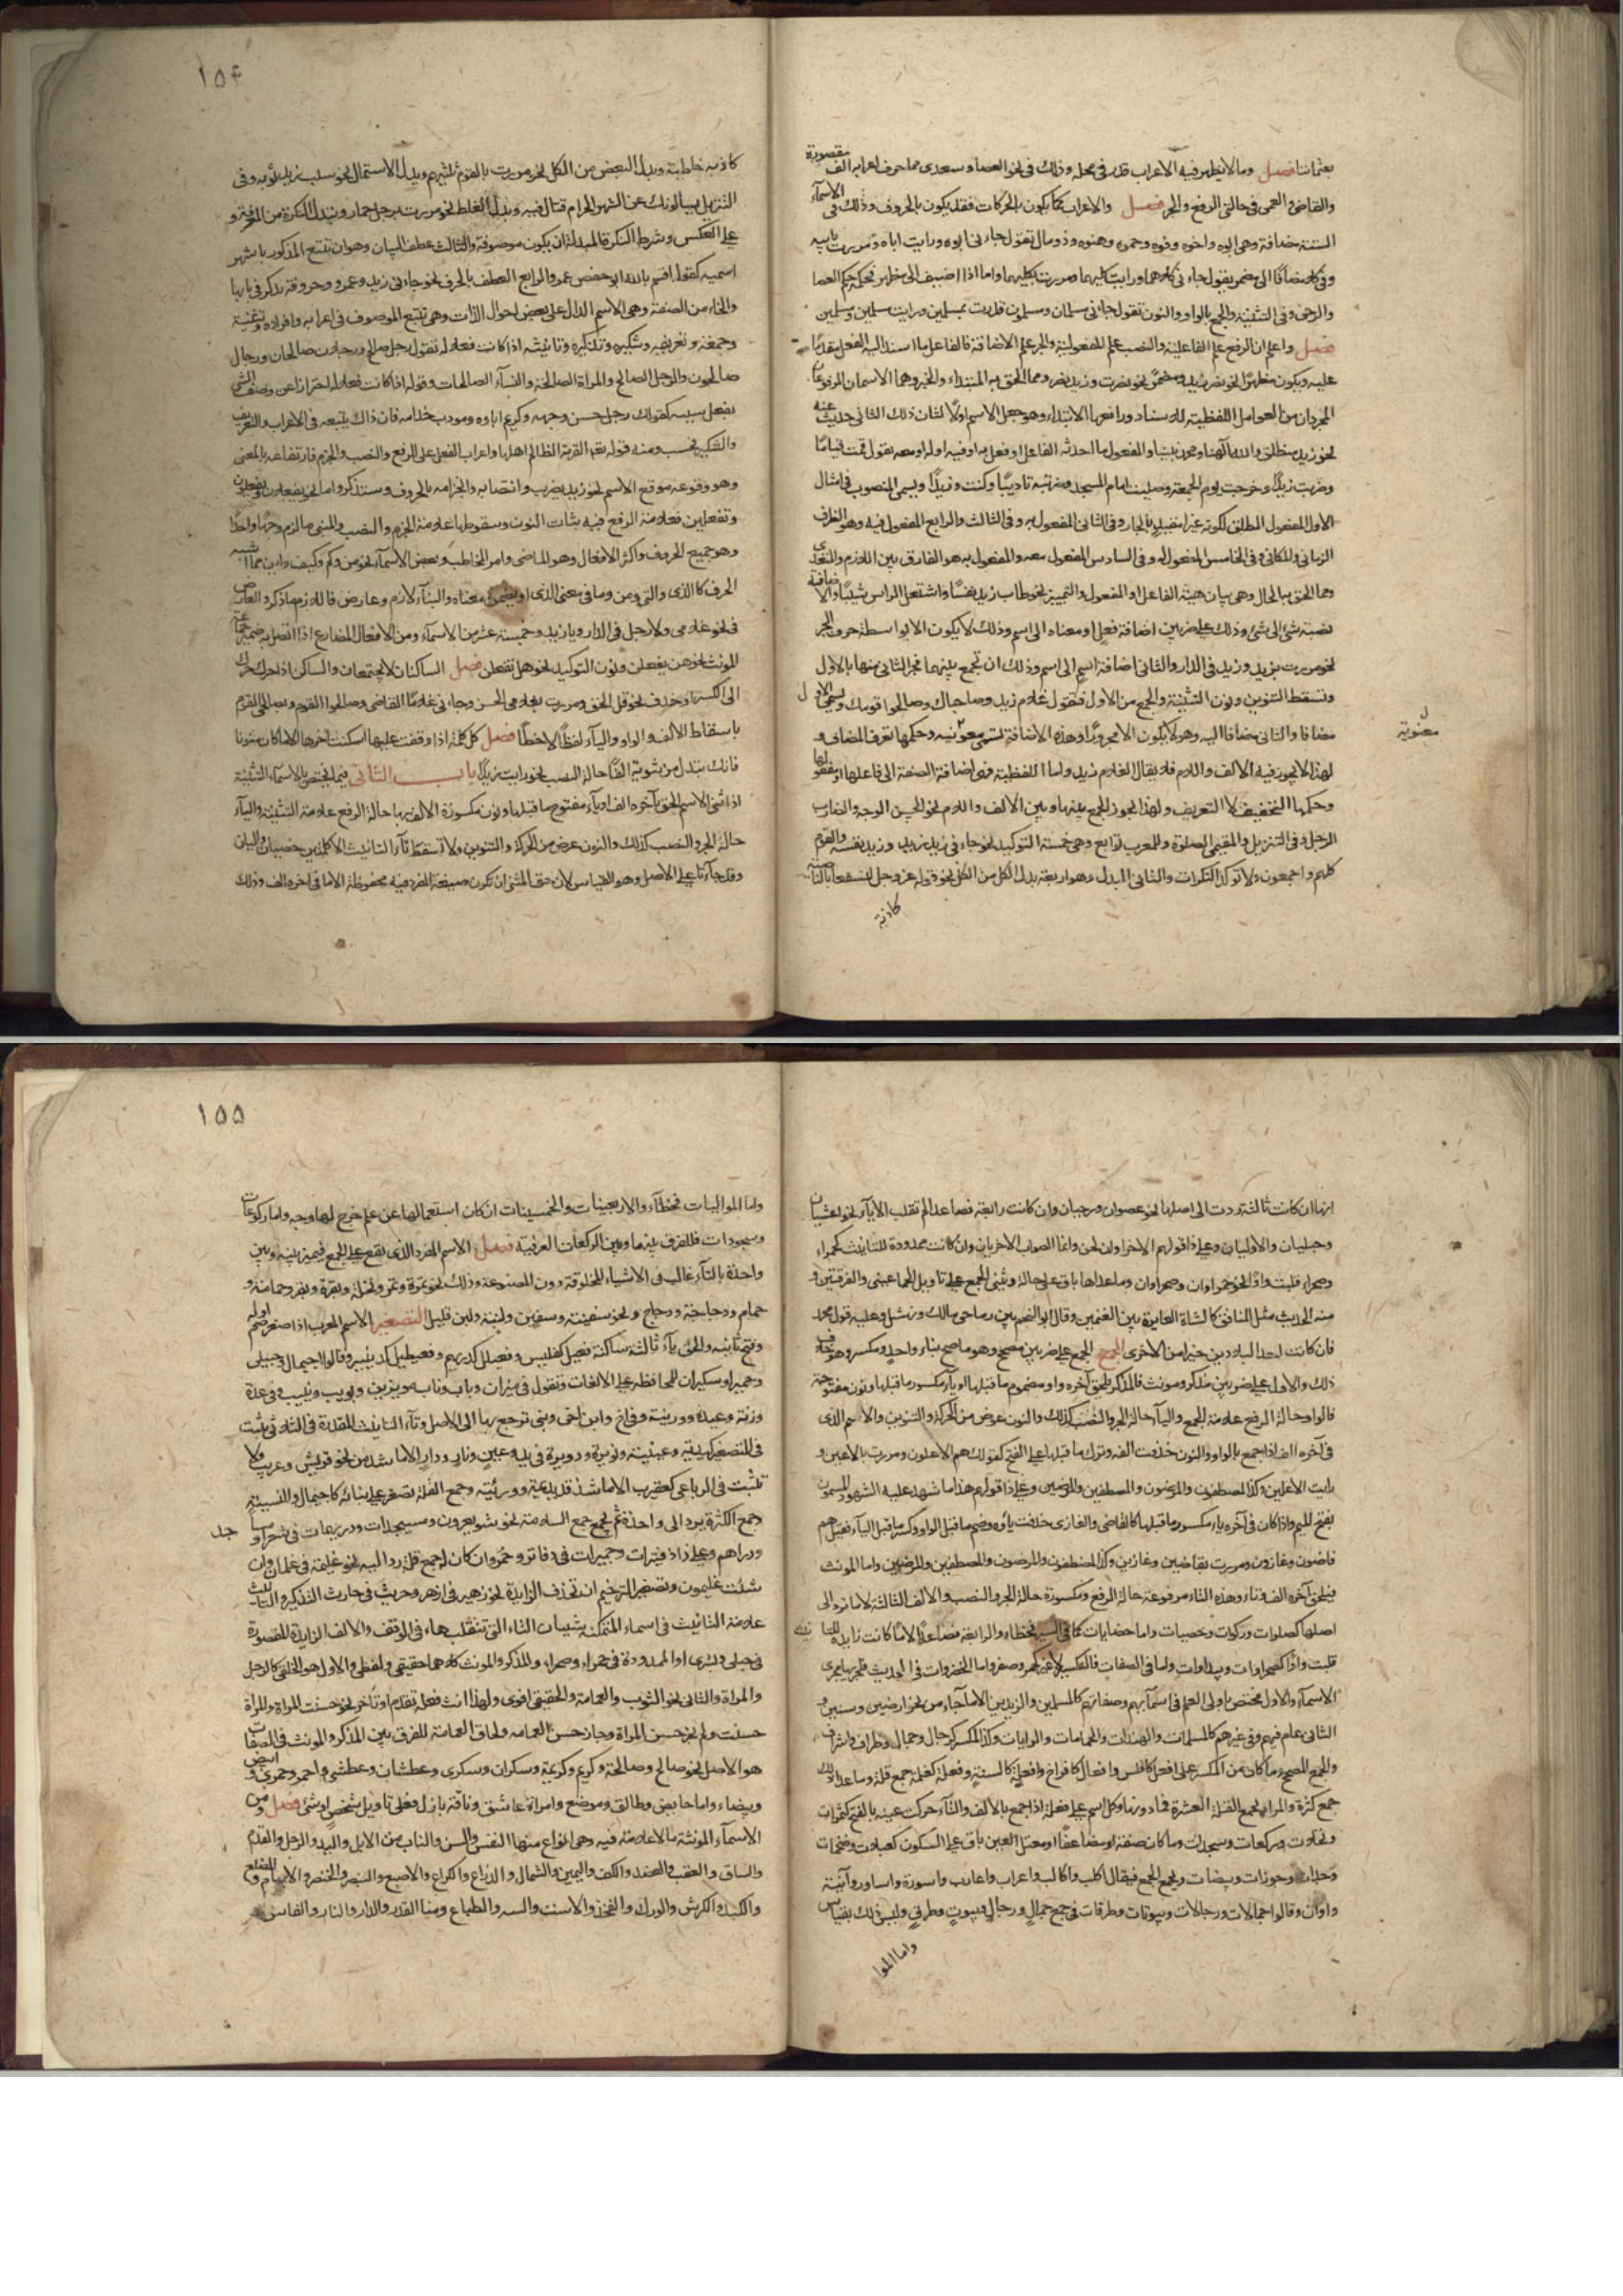 بعثماننا فصل وما لا يظهر فيه الاعراب قدر في محله وذلك في نحو العصا وسعدى مما حرف اعرابه الف مقصورة
والقاضي والعمي في حالتي الرفع والجر فصل والاعراب كما يكون بالحركات فقد يكون بالحروف وذلك في الاسماء
الستة مضافة وهي ابوه واخوه وفوه وحموه وهنوه وذو مال تقول جاءني ابوه ورايت اباه ومررت بابيه
وفي كلا مضافا الى مضمر يقول جاءني كلاهما ورايت كليهما ومررت بكليهما واما اذا اضيف الى مظهر فحكمه حكم العصا
والرحى وفي التثنية والجمع بالواو والنون تقول جاءني مسلمان ومسلمون ومررت بمسلمين ورايت مسلمين ومسلمين
فصل واعلم ان الرفع علم الفاعلية والنصب علم المفعولية والجر علم الاضافة فالفاعل ما اسند اليه الفعل مقدما
عليه ويكون مظهرا نحو نصر زيد ومضمرا نحو نصرت وزيد نصر ومما الحق به المبتداء والخبر وهما الاسمان المرفوعان
المجردان من العوامل اللفظية للاسناد ورافعهما الابتداء وهو جعل الاسم اولا لثان ذلك الثاني حديث عنه
نحو زيد منطلق والله الهنا ومحمد نبينا والمفعول ما احدثه الفاعل او فعل به او فيه او له او معه تقول قمت قياما
وضربت زيدا وخرجت يوم الجمعة وصليت امام المسجد وضربته تاديبا وكنت وزيدا ويسمى المنصوب في مثال
الاول المفعول المطلق لكونه غير مقيد بالجار وفي الثاني المفعول به وفي الثالث والرابع المفعول فيه وهو الظرف
الزماني والمكاني وفي الخامس المفعول له وفي السادس المفعول معه والمفعول به هو الفارق بين اللازم والمتعدي
ومما الحق به الحال وهي بيان هيئة الفاعل او المفعول والتمييز نحو طاب زيد نفسا واشتعل الراس شيبا والاضافة
نسبة شئ الى شئ وذلك على ضربين اضافة فعل او معناه الى اسم وذلك لا يكون الا بواسطة حرف الجر
نحو مررت بزيد وزيد في الدار والثاني اضافة اسم الى اسم وذلك ان تجمع بينهما فجر الثاني منهما بالاول
وتسقط التنوين ونون التثنية والجمع من الاول فتقول غلام زيد وصاحباك وصالحوا قومك ويسمى الاول
مضافا والثاني مضافا اليه وهو لا يكون الا مجرورا وهذه الاضافة تسمى معنوية وحكمها تعرف المضاف و
معنوية
لهذا لا يجوز فيه الالف واللام فلا يقال الغلام زيد واما اللفظية فهي اضافة الصفة الى فاعلها او مفعولها
وحكمها التخفيف لا التعريف ولهذا يجوز الجمع بينها وبين الالف واللام نحو الحسن الوجه والضارب
الرجل وفي التنزيل والمقيمي الصلوة وللمعرب توابع وهي خمسة التوكيد نحو جاءني زيد زيد وزيد نفسه والقوم
كلهم واجمعون ولا توكد النكرات والثاني البدل وهو اربعة بدل الكل من الكل نحو قوله عز وجل لنسفعا بالناصية
كاذبة
١٥٤
كاذبة خاطئة وبدل البعض من الكل نحو مررت بالقوم ثلثيهم وبدل الاشتمال نحو سلب زيد ثوبه وفي
التنزيل يسالونك عن الشهر الحرام قتال فيه وبدل الغلط نحو مررت برجل حمار وتبدل النكرة من المعرفة و
على العكس وشرط النكرة المبدلة ان يكون موصوفة والثالث عطف البيان وهو ان تتبع المذكور باشهر
اسميه كقوله اقسم بالله ابو حفص عمر والرابع العطف بالحرف نحو جاءني زيد وعمرو وحروفه تذكر في بابها
والخامس الصفة وهي الاسم الدال على بعض احوال الذات وهي تتبع الموصوف في اعرابه وافراده وتثنيته
وجمعه وتعريفه وتنكيره وتذكيره وتانيثه اذا كانت فعلا له تقول رجل صالح ورجلان صالحان ورجال
صالحون والرجل الصالح والمراة الصالحة والنساء الصالحات وقوله اذا كانت فعلا له احترازا عن وصف الشئ
بفعل سببه كقولك رجل حسن وجهه وكريم اباوه ومودب خدامه فان ذاك يتبعه في الاعراب والتعريف
والتنكير فحسب ومنه قوله تعالى القرية الظالم اهلها واعراب الفعل على الرفع والنصب والجزم فارتفاعه بالمعنى
وهو وقوعه موقع الاسم نحو زيد يضرب وانتصابه وانجزامه بالحروف وستذكر واما نحو يفعلان ويفعلون
وتفعلين فعلامة الرفع فيه بثات النون وسقوطها علامة الجزم والنصب والمبني ما لزم وجها واحدا
وهو جميع الحروف واكثر الافعال وهو الماضي وامر المخاطب وبعض الاسماء نحو من وكم وكيف واين مما اشبه
الحرف كالذي والتي ومن وما في معنى الذي او تضمن معناه والبناء لازم وعارض فاللازم ما ذكر والعارض
في نحو غلامي ولا رجل في الدار ويا زيد وخمسة عشر من الاسماء ومن الافعال المضارع اذا اتصل به ضمير جماعة
المونث نحو هن يفعلن ونون التوكيد نحو هل تفعلن فصل الساكنان لا يجتمعان والساكن اذا حرك حرك
الى الكسر او حذف نحو قل الحق ومررت بغلامي الحسن وجاءني غلاما القاضي وصالحوا القوم وبصالحي القوم
باسقاط الالف والواو والياء لفظا لا خطا فصل كل كلمة اذا وقفت عليها اسكنت اخرها الا ما كان منونا
فانك تبدل من تنوينه الفا حالة النصب نحو رايت زيدا باب الثاني فيما يختص بالاسماء التثنية
اذا ثني الاسم الحق باخره الف او ياء مفتوح ما قبلها ونون مكسورة الالف بها حالة الرفع علامة التثنية والياء
حالة الجر والنصب كذلك والنون عوض من الحركة والتنوين ولا تسقط تاء التانيث الا كلمتين خصيان واليان
وقد جاءتا على الاصل وهو القياس لان حق المثنى ان تكون صيغة المفرد فيه محفوظة الا ما في اخره الف وذلك
انها ان كانت ثالثة ردت الى اصلها نحو عصوان ورحيان وان كانت رابعة فصاعدا لم تقلب الا ياء نحو اعشيان
وحبليان والاوليان وعلى ذا قولهم الاخراوان لحن وانما الصواب الاخريان وان كانت ممدودة للتانيث كحمراء
وصحراء قلبت واوا نحو حمراوان وصحراوان وما عداها باق على حاله وتثنى الجمع على تاويل الجماعتين والفرقتين و
منه الحديث مثل المنافق كالشاة العايرة بين الغنمين وقال ابو النجم بين رماحي مالك ونهشل وعليه قول محمد
فان كانت احدا البلادين خيرا من الاخرى الجمع الجمع على ضربين مصحح وهو ما صح بناء واحده ومكسر وهو خلاف
ذلك والاول على ضربين مذكر ومونث فالمذكر يلحق آخره واو مضموم ما قبلها او ياء مكسور ما قبلها ونون مفتوحة
فالواو حالة الرفع علامة الجمع والياء حالة الجر والنصب كذلك والنون عوض من الحركة والتنوين والاسم الذي
في آخره الف اذا جمع بالواو والنون حذفت الفه وترك ما قبلها على الفتح كقولك هم الاعلون ومررت بالاعلين و
رايت الاعلين وكذا المصطفون والمرتضون والمصطفين والمرتضين وعلى ذا قولهم هذا ما شهد عليه الشهود المسمون
بفتح الميم واذا كان في آخره ياء مكسور ما قبلها كالقاضي والغازي حذفت ياؤه وضم ما قبل الواو وكسر ما قبل الياء فقيل هم
قاضون وغازون ومررت بقاضين وغازين وكذا المصطفون والمرتضون والمصطفين والمرتضين واما المونث
فيلحق آخره الف وتاء وهذه التاء مرفوعة حالة الرفع ومكسورة حالة الجر والنصب والالف الثالثة لاما ترد الى
اصلها كصلوات وزكوات وحصيات واما حضايات كما في السير فخطاء والرابعة فصاعدا لاما كانت زايدة للتا نيث
قلبت واوا كصحراوات وبيداوات واما في الصفات فالتكسير لا غير كحمر وصفر واما الخضروات في الحديث فلجريها مجرى
الاسماء والاول مختص باولي العلم في اسمائهم وصفاتهم كالمسلمين والزيدين الا ما جاء من نحو ارضين وسنين و
الثاني عام فيهم وفي غيرهم كالمسلمات والهندات والحمامات والرايات وكذا المكسر كرجال وجمال وظراف واشراف
والجمع المصحح وما كان من المكسر على افعل كافلس وافعال كافراخ وافعلة كالسنة وفعلة كغلمة جمع قلة وما عدا ذلك
جمع كثرة والمراد بجمع القلة العشرة فما دونها وكل اسم على فعلة اذا جمع بالالف والتاء حركت عينه بالفتح كتمرات
ونخلات وركعات وسجدات وما كان صفة او مضاعفا او معتل العين باق على السكون كعبلات وضخمات
وحدات وجوزات وبيضات ويجمع الجمع فيقال اكلب واكالب واعراب واعاريب واسورة واساور وآنية
واوان وقالوا جمالات ورجالات وبيوتات وطرقات في جمع جمال ورجال وبيوت وطرق وليس ذلك بقياس
واما الموا
١٥٥
واما المواليات فخطاء والاربعينات والخمسينات ان كان استعمالها عن علم خرج لها وجه واما ركوعات
وسجودات فللفرق بينها وبين الركعات العرفية فصل الاسم المفرد الذي يقع على الجمع فيميز بينه وبين
واحدة بالتاء غالب في الاشياء المخلوقة دون المصنوعة وذلك نحو تمرة وتمر ونخلة ونخل وبقرة وبقر وحمامة و
حمام ودجاجة ودجاج ونحو سفينة وسفين ولبنة ولبن قليل التصغير الاسم المعرب اذا صغر ضم اوله
وفتح ثانيه والحق ياء ثالثة ساكنة فعيل كفليس وفعيعل كدريهم وفعيعيل كدنينير وقالوا اجيمال وحبيلى
وحميراء وسكيران للمحافظة على الالفات وتقول في ميزان وباب وناب مويزين وبويب ونييب وفي عدة
وزنة وعيدة ووزينة وفي اخ وابن اخي وبني ترجع بها الى الاصل وتاء التانيث المقدرة في الثلاثي تثبت
في التصغير كيدية وعيينة ونويرة ودويرة في يد وعين ونار ودار الا ما شذ من نحو قويس وعريب ولا
تثبت في الرباعي كعقيرب الا ما شذ قديديمة ووريئة وجمع القلة تصغر على بنائه كاجيمال والنسيبة
وجمع الكثرة يرد الى واحدة ثم يجمع جمع السلامة نحو شويعرون ومسيجدات ودريهمات في شعراء ومسا جد
ودراهم وعلى ذا دفيترات وحميرات في دفاتر وحمر وان كان له جمع قلة رد اليه نحو غليمة في غلمان وان
شئت غليمون وتصغير الترخيم ان تحذف الزايدة نحو زهير في ازهر وحريث في حارث التذكير والتانيث
علامة التانيث في اسماء المتمكنة شيئان التاء التي تنقلب هاء في الوقف والالف الزايدة المقصورة
في حبلى وبشرى او الممدودة في حمراء وصحراء والمذكر والمونث كلاهما حقيقي ولفظي والاول هو الخلقي كالرجل
والمراة والثاني نحو الثوب والعمامة والحقيقي اقوى ولهذا انث فعله تقدم او تاخر نحو حسنت المراة والمراة
حسنت ولم يجز حسن المراة وجاز حسن العمامه ولحاق العلامة للفرق بين المذكر والمونث في الصفات
هو الاصل نحو صالح وصالحة وكريم وكريمة وسكران وسكرى وعطشان وعطشى واحمر وحمرى و ابيض
وبيضاء واما حايض وطالق ومرضع وامراة عاشق وناقة بازل فعلى تاويل شخص او شئ فصل ومن
الاسماء المونثة ما لا علامة فيه وهي انواع منها النفس والسن والناب من الابل واليد والرجل والقدم
والساق والعقب والعضد والكف واليمين والشمال والذراع والكراع والاصبع والبنصر والخنصر والابهام والضلع و
والكبد والكرش والورك والفخذ والاست والسه والطباع ومنها القدر والدار والنار والفاس